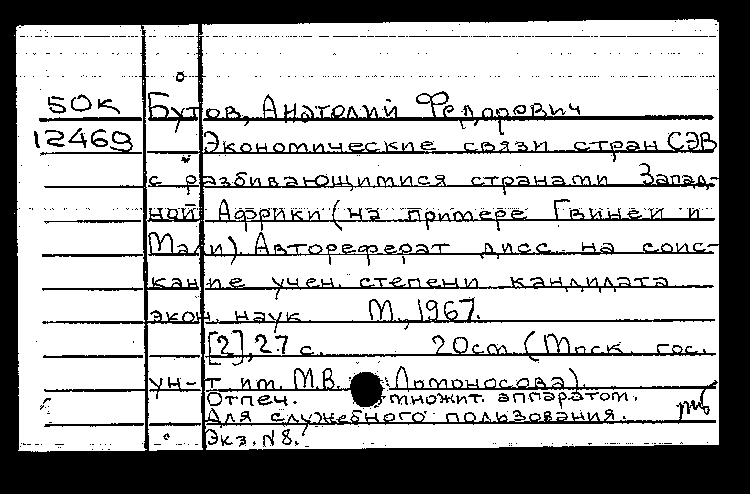 50К Бутов, Анатолий Федорович
12469 Экономические связи стран СЭВ
с разбивающимися странами Запад-
ной Африки (на примере Гвинеи и
Мали). Автореферат дисс. на соис-
кание учен. степени кандидата
экон. наук. М., 1967.
[2], 27 с. 20см. (Моск. гос.
ун-т им. М.В. Ломоносова).
Отпеч. множит. аппаратом.
Для служебного пользования.
Экз. №8.